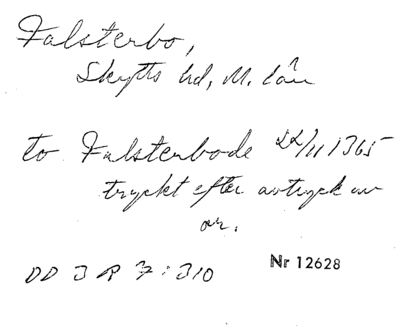 Falsterbo,
Skytts hd, M. län
to Falsterbode 22/11 1365
tryckt efter avtryck av
or.
DD 3 R 7:310
Nr 12628